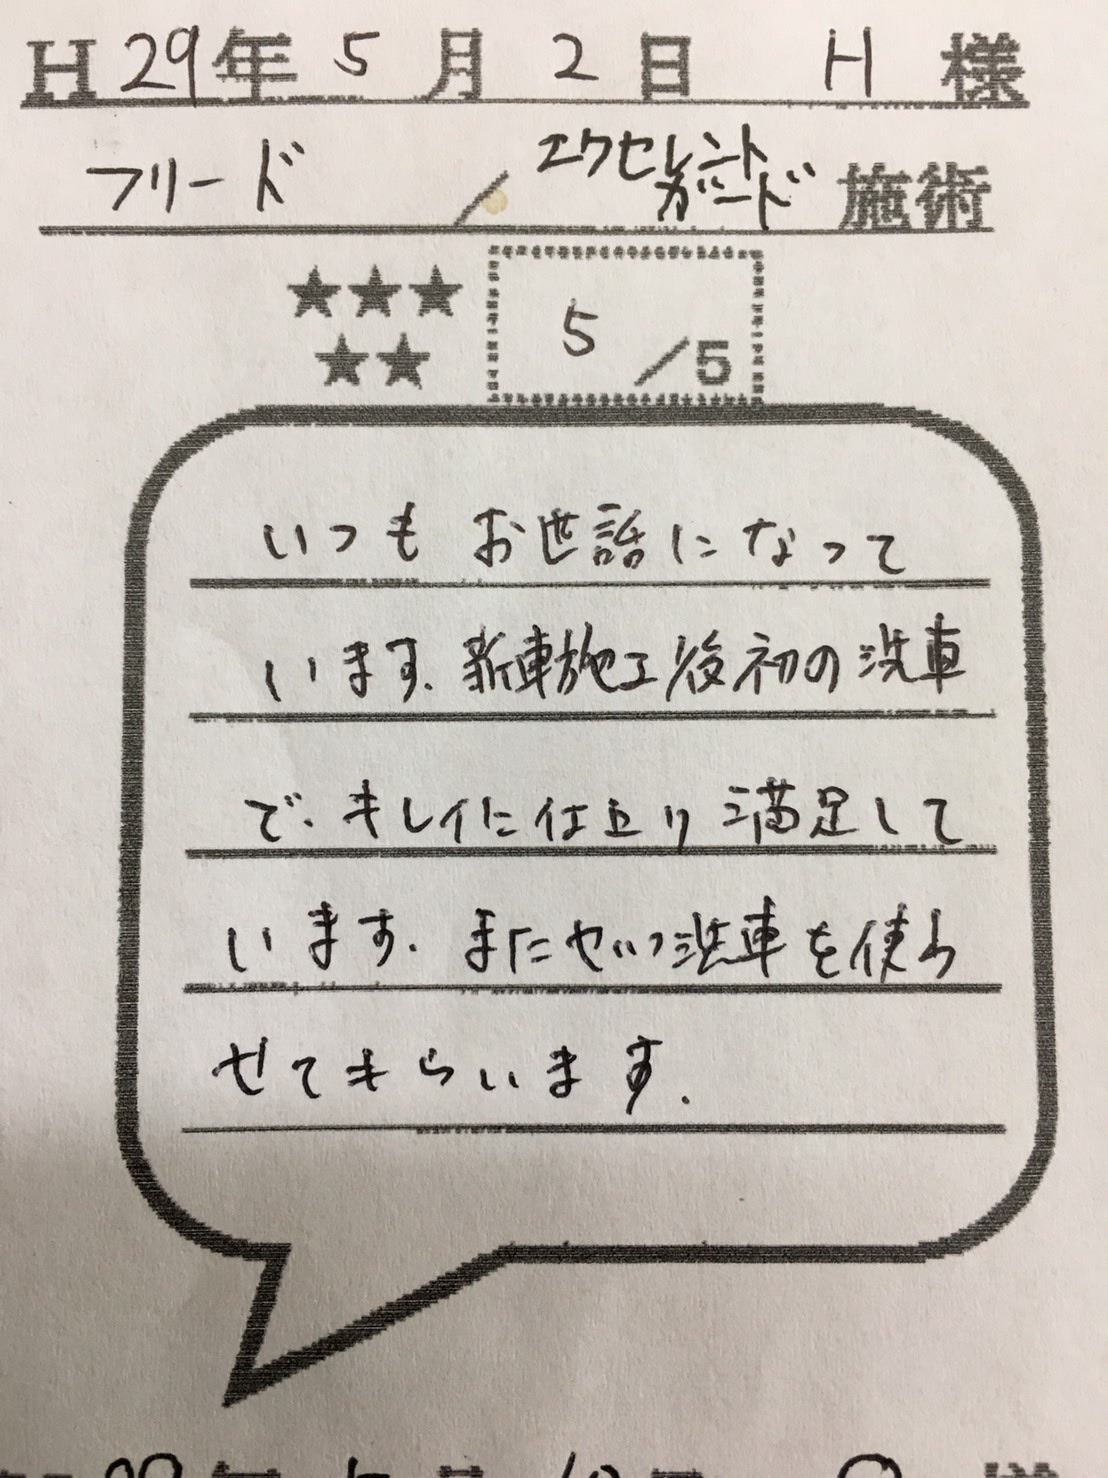 H29年5月2日 H様
フリード／エクセレントガード 施術
★★★
★★
5／5
いつもお世話になって
います.新車施工後初の洗車
で、キレイに仕上り満足して
います.また洗車を使わ
せてもらいます.